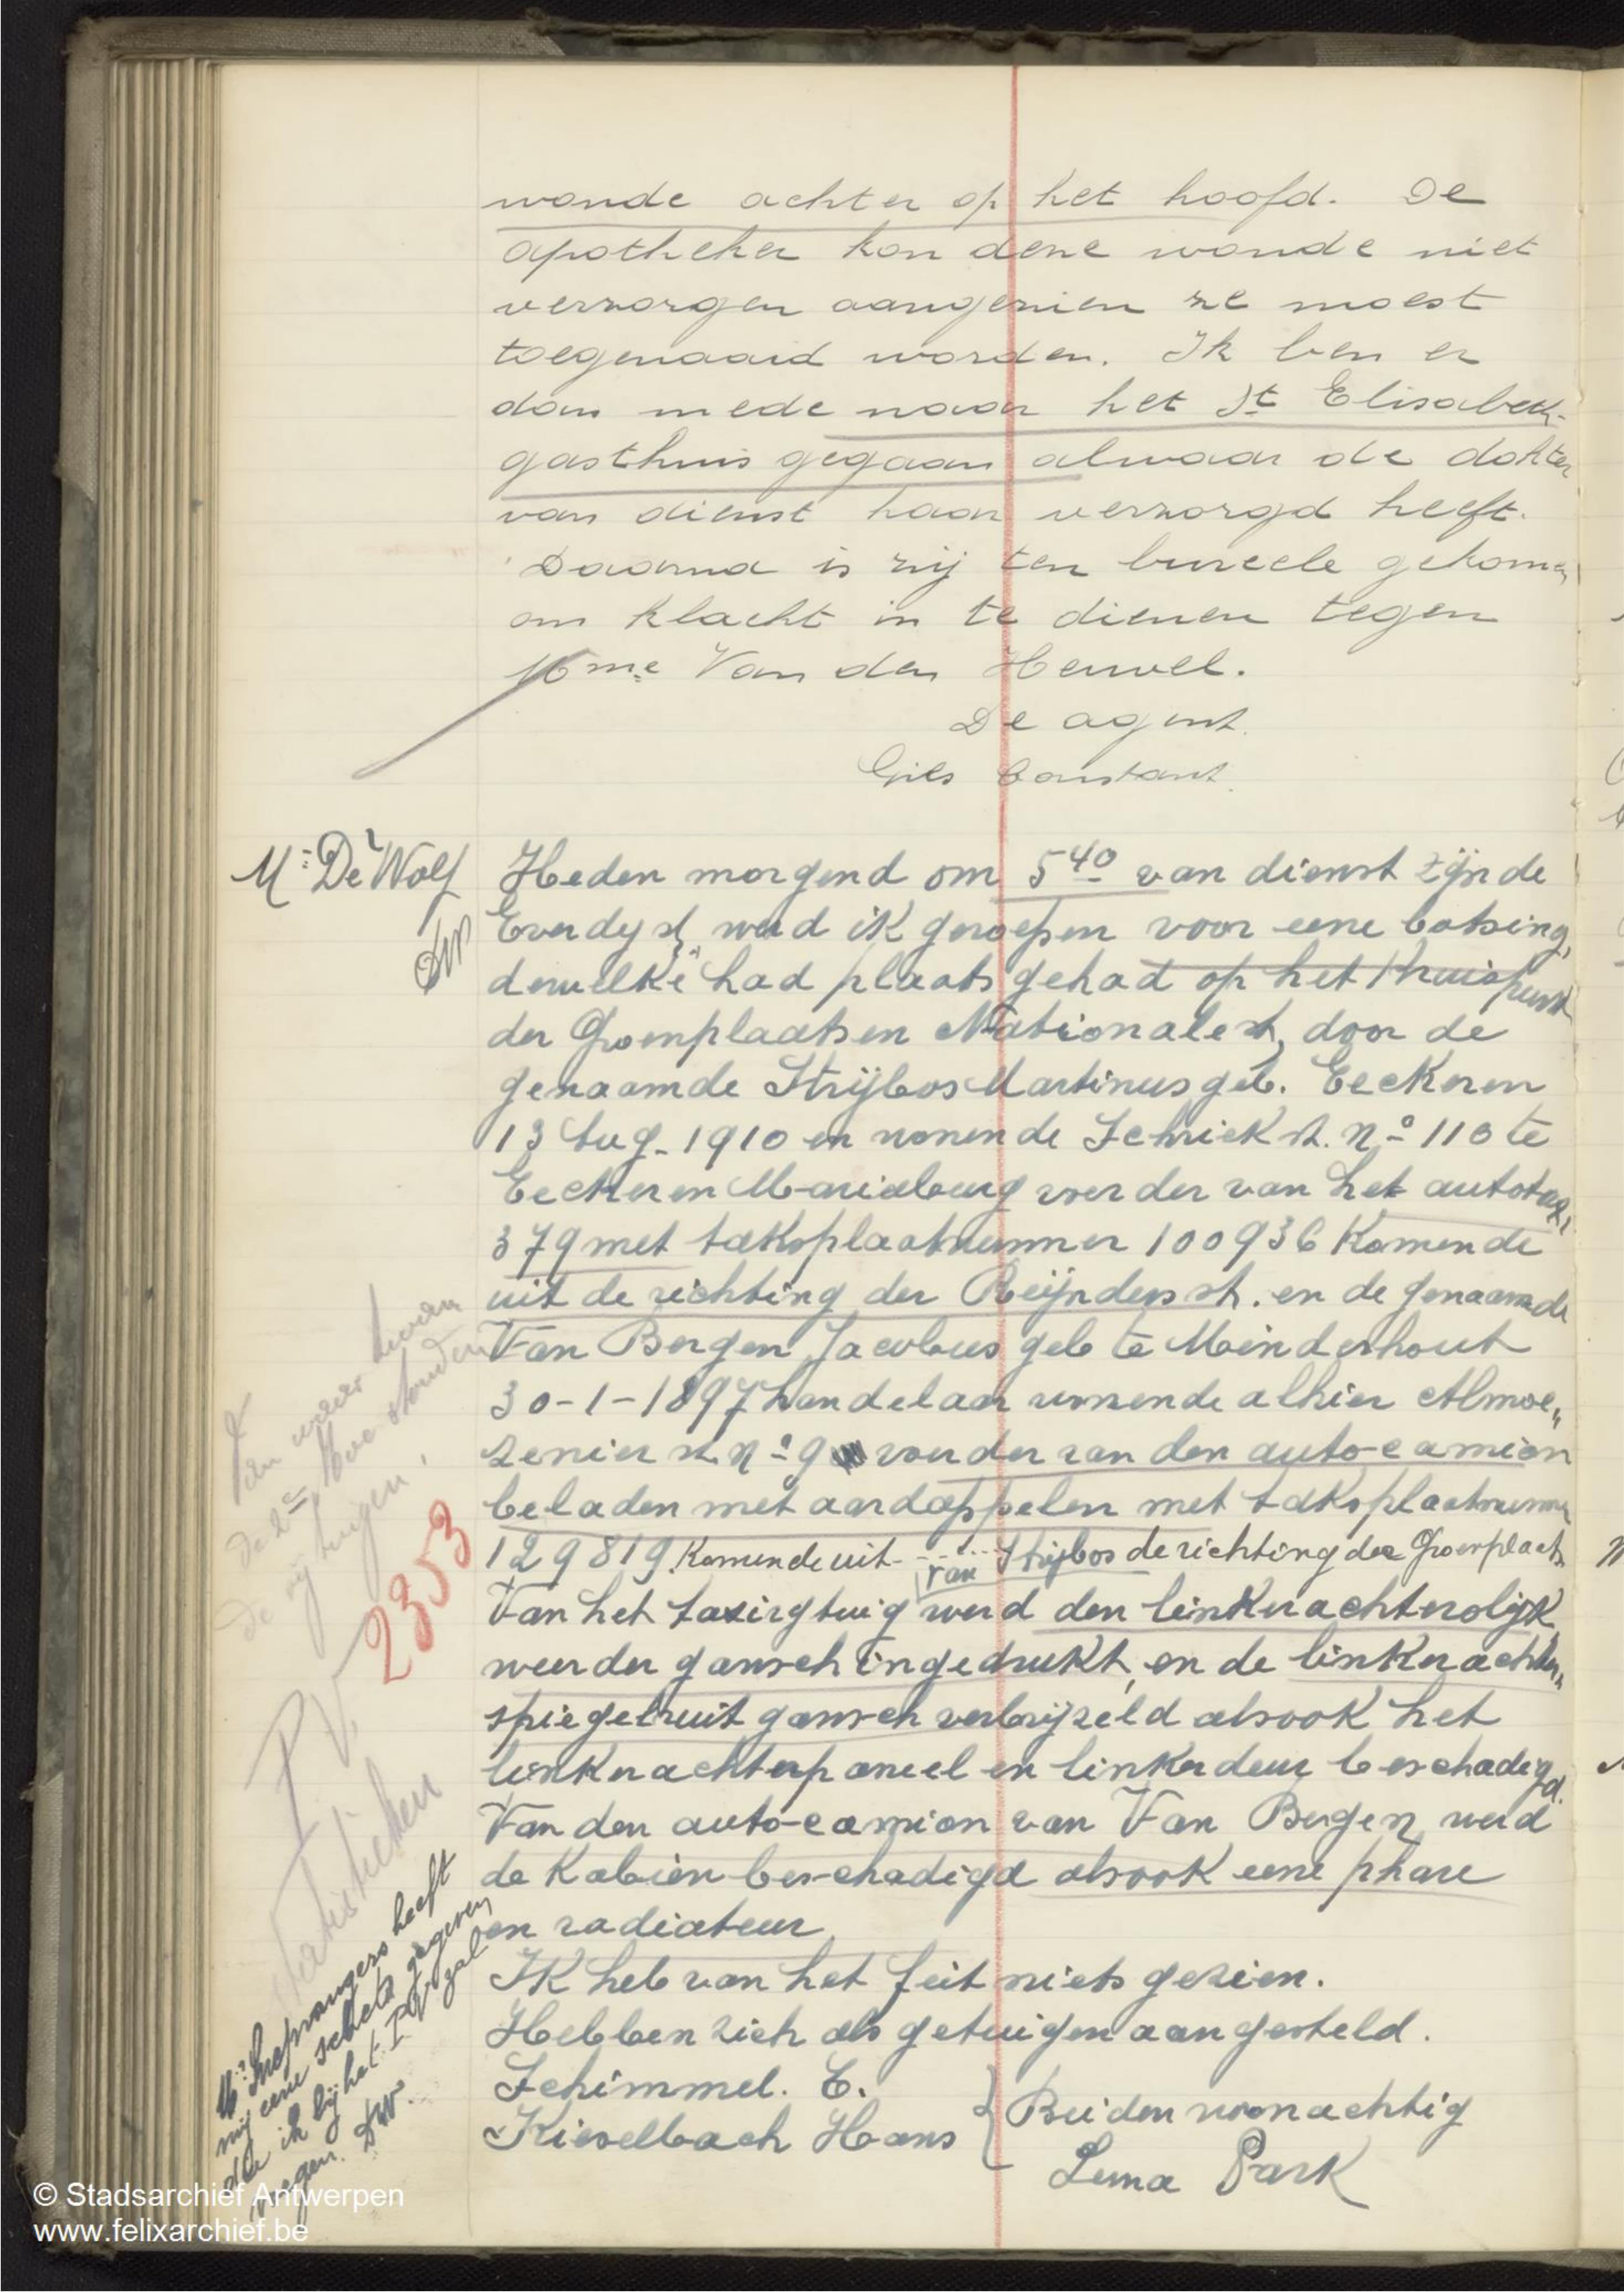 wonde achter op het hoofd. De
apotheker kon deze wonde niet
verzorgen aangezien ze moest
toegenaaid worden. Ik ben er
dan mede naar het St Elisabeth-
gasthuis gegaan alwaar de dokter
van dienst haar verzorgd heeft.
Daarna is zij ten bureele gekomen
om klacht in te dienen tegen
Mme Van den Heuvel.
De agent.
Gils Constant.
Mr De Wolf
DW
Heden morgend om 5 40 van dienst zijnde
Everdyst, werd ik geroepen voor eene botsing,
dewelke had plaats gehad op het Kruispunt
der Groenplaats en Nationalest, door de
genaamde Strijbos Martinus geb. Eeckeren
13 Aug. 1910 en wonende Schriek st. No 110 te
Eeckeren Mariaburg voerder van het autotaxi
379 met taksplaatnummer 100936 Komende
uit de richting der Reijnders st. en de genaamde
Van Bergen Jacobus geb te Meinderhout
30-1-1897 handelaar wonende alhier Almoe„
zenier st No 9 voerder van den auto-camion
beladen met aardappelen met taksplaatnummer
129819. Komende uit de richting der Groenplaats
van Strijbos
Van het taxirytuig werd den linkerachterslijk
weerder gansch ingedrukt, en de linkerachter„
spiegelruit gansch verbrijzeld alsook het
linkerachterpaneel en linkerdeur beschadigd.
Van den auto-camion van Van Bergen werd
de Kabien beschadigd alsook eene phare
en radiateur
IK heb van het feit niets gezien.
Hebben zich als getuigen aangesteld.
Schimmel. E.
Kieselbach Hans
} Beiden woonachtig
Luna Park
van waar kwam
de 2de, hoe stonden
de rijtuigen.
2353
P.V.
Statistieken
heeft
mij eene schets gegeven
die ik bij het P.V. zal
voegen. DW.
© Stadsarchief Antwerpen
www.felixarchief.be